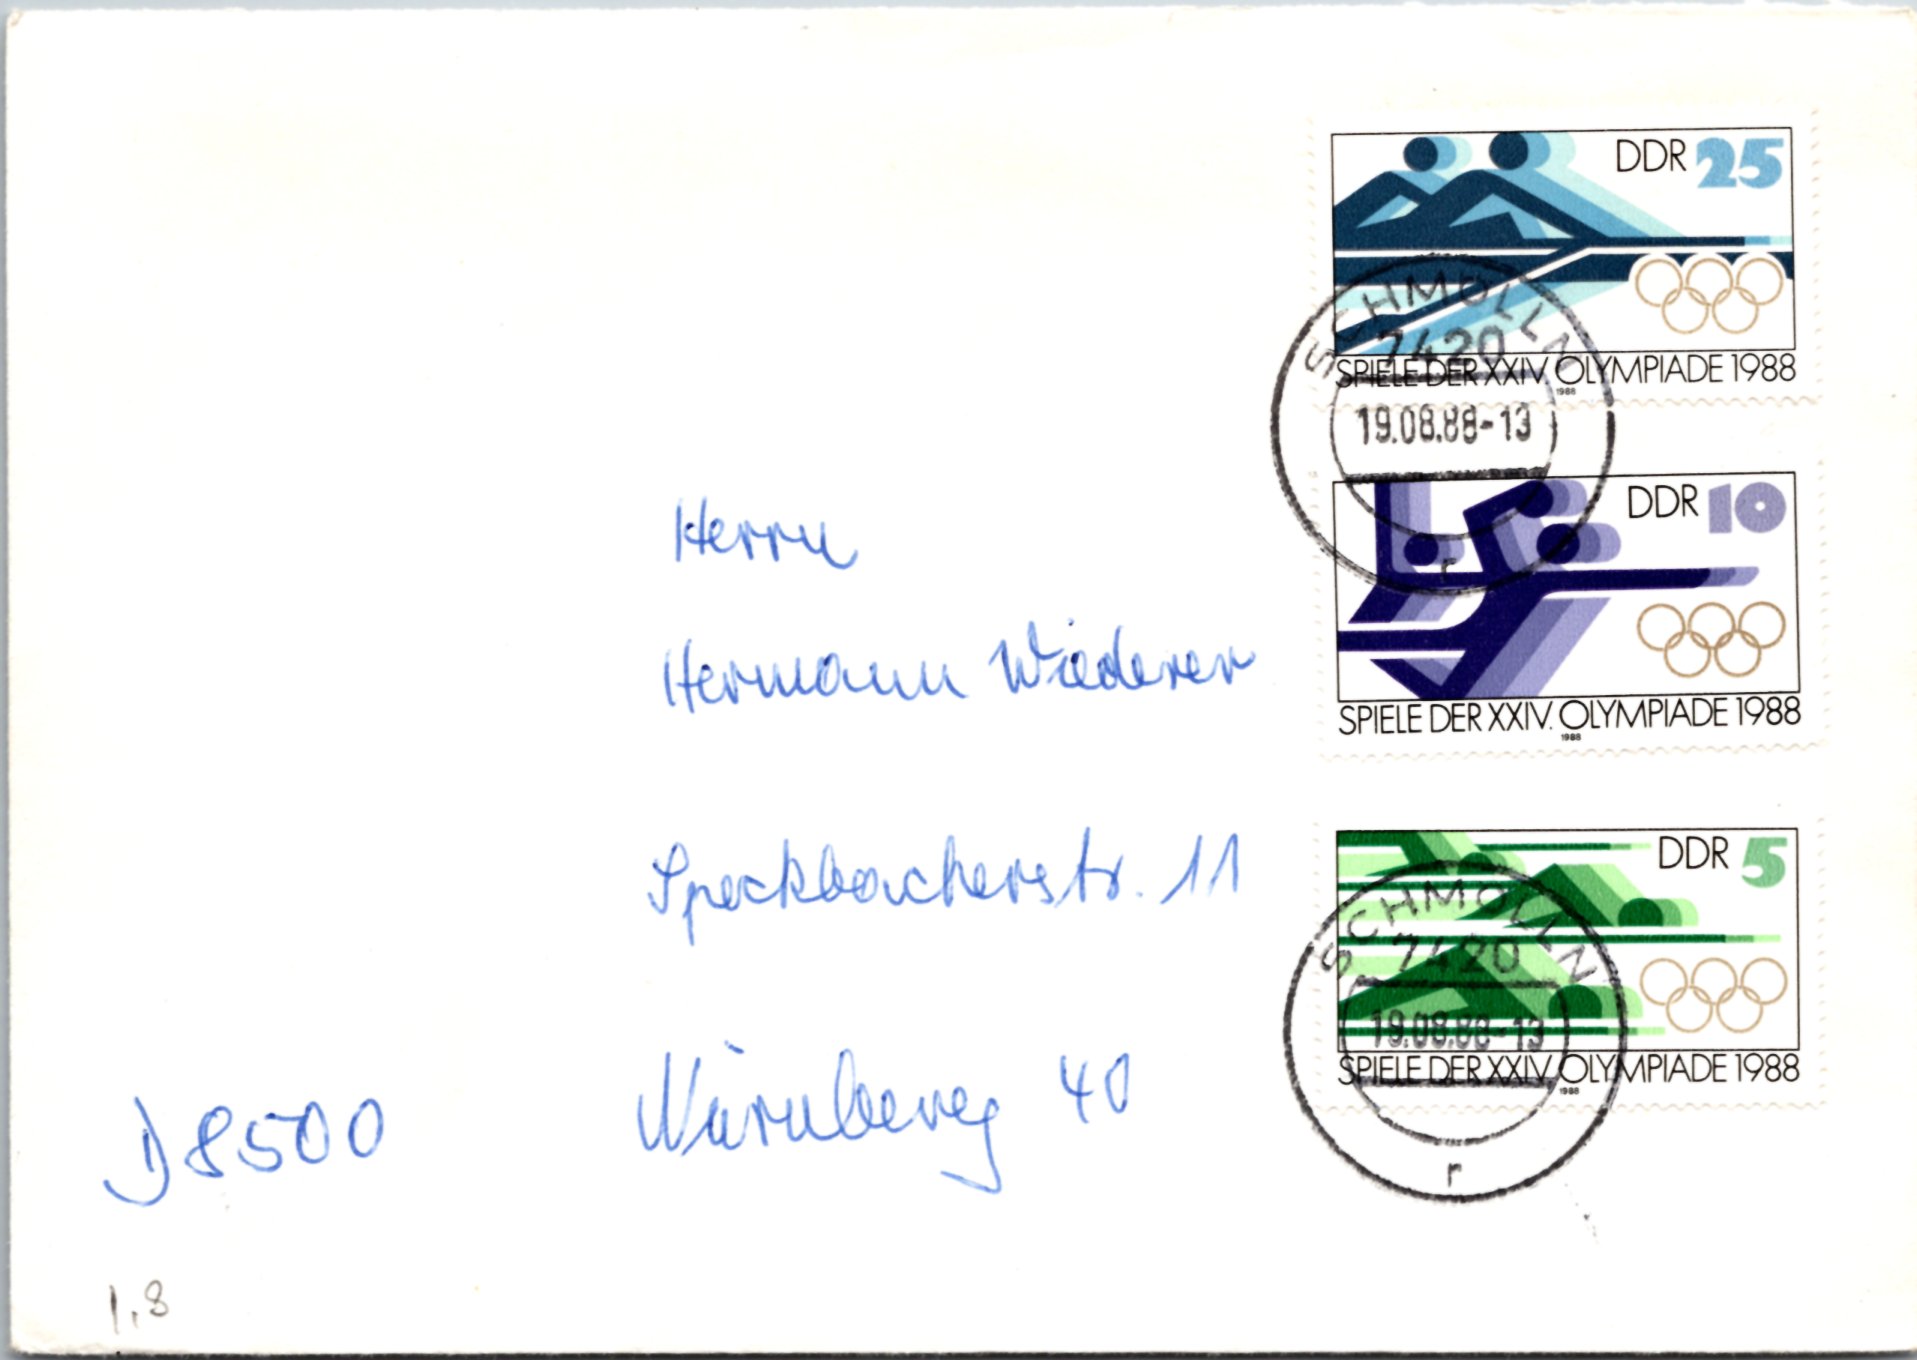 DDR 25
SPIELE DER XXIV. OLYMPIADE 1988
1988
SCHMÖLLN
7420
19.08.88-13
r
DDR 10
SPIELE DER XXIV. OLYMPIADE 1988
1988
DDR 5
SPIELE DER XXIV. OLYMPIADE 1988
1988
SCHMÖLLN
7420
19.08.88-13
r
Herrn
Hermann Wiederer
Speckbacherstr. 11
D 8500 Nürnberg 40
1,8